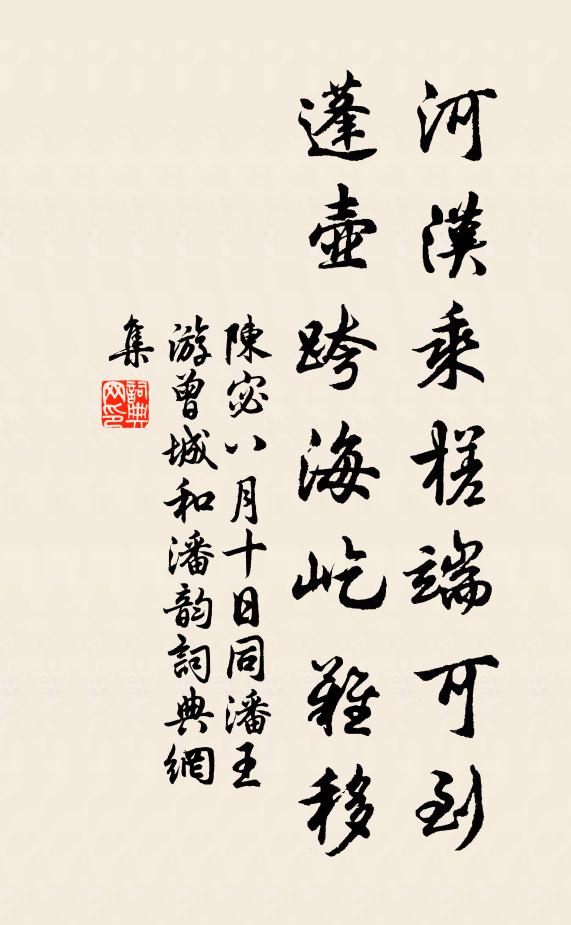 河漢乘槎端可到
蓬壺跨海屹難移
陳宓八月十日同潘王
游曾城和潘韵詞典網
集
詞典網印